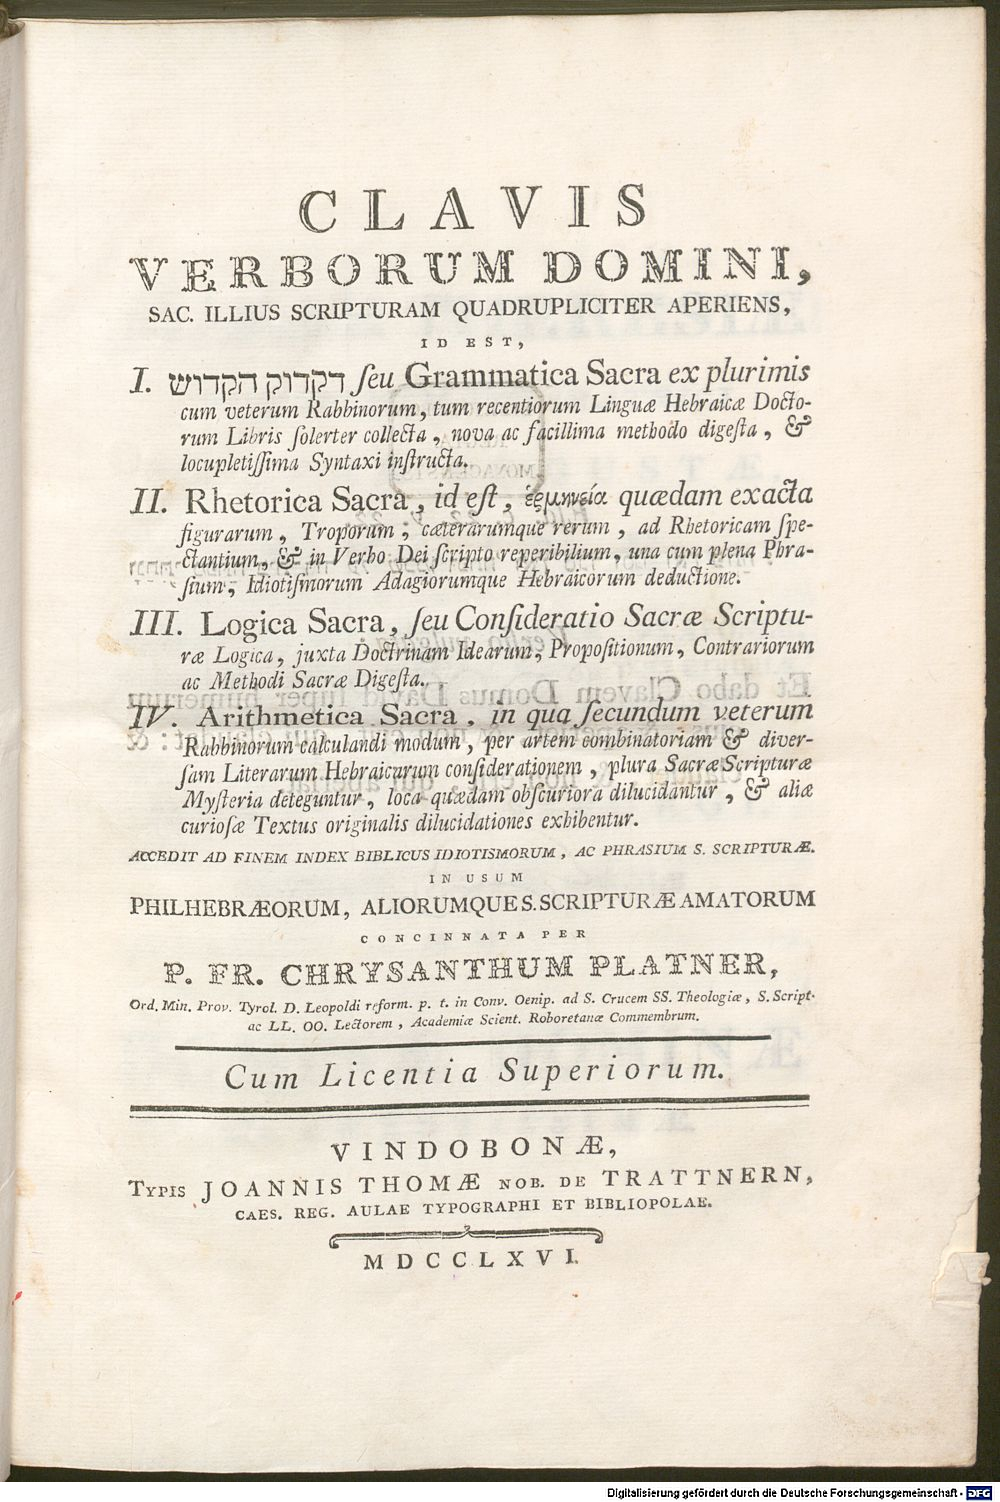 CLAVIS
VERBORUM DOMINI,
SAC. ILLIUS SCRIPTURAM QUADRUPLICITER APERIENS,
ID EST,
I. דקדוק הקדוש ſeu Grammatica Sacra ex plurimis
cum veterum Rabbinorum, tum recentiorum Linguæ Hebraicæ Docto-
rum Libris ſolerter collecta, nova ac facillima methodo digeſta, &
locupletiſſima Syntaxi inſtructa.
II. Rhetorica Sacra, id eſt, ἑρμηνεία quædam exacta
figurarum, Troporum, cæterarumque rerum, ad Rhetoricam ſpe-
ctantium, & in Verbo Dei ſcripto reperibilium, una cum plena Phra-
ſium, Idiotiſmorum Adagiorumque Hebraicorum deductione.
III. Logica Sacra, ſeu Conſideratio Sacræ Scriptu-
ræ Logica, juxta Doctrinam Idearum, Propoſitionum, Contrariorum
ac Methodi Sacræ Digeſta.
IV. Arithmetica Sacra, in qua ſecundum veterum
Rabbinorum calculandi modum, per artem combinatoriam & diver-
ſam Literarum Hebraicarum conſiderationem, plura Sacræ Scripturæ
Myſteria deteguntur, loca quædam obſcuriora dilucidantur, & aliæ
curioſæ Textus originalis dilucidationes exhibentur.
ACCEDIT AD FINEM INDEX BIBLICUS IDIOTISMORUM, AC PHRASIUM S. SCRIPTURÆ.
IN USUM
PHILHEBRÆORUM, ALIORUMQUE S. SCRIPTURÆ AMATORUM
CONCINNATA PER
P. FR. CHRYSANTHUM PLATNER,
Ord. Min. Prov. Tyrol. D. Leopoldi reform. p. t. in Conv. Oenip. ad S. Crucem SS. Theologiæ, S. Script.
ac LL. OO. Lectorem, Academiæ Scient. Roboretanæ Commembrum.
Cum Licentia Superiorum.
VINDOBONÆ,
TYPIS JOANNIS THOMÆ NOB. DE TRATTNERN,
CAES. REG. AULAE TYPOGRAPHI ET BIBLIOPOLAE.
MDCCLXVI.
Digitalisierung gefördert durch die Deutsche Forschungsgemeinschaft - DFG